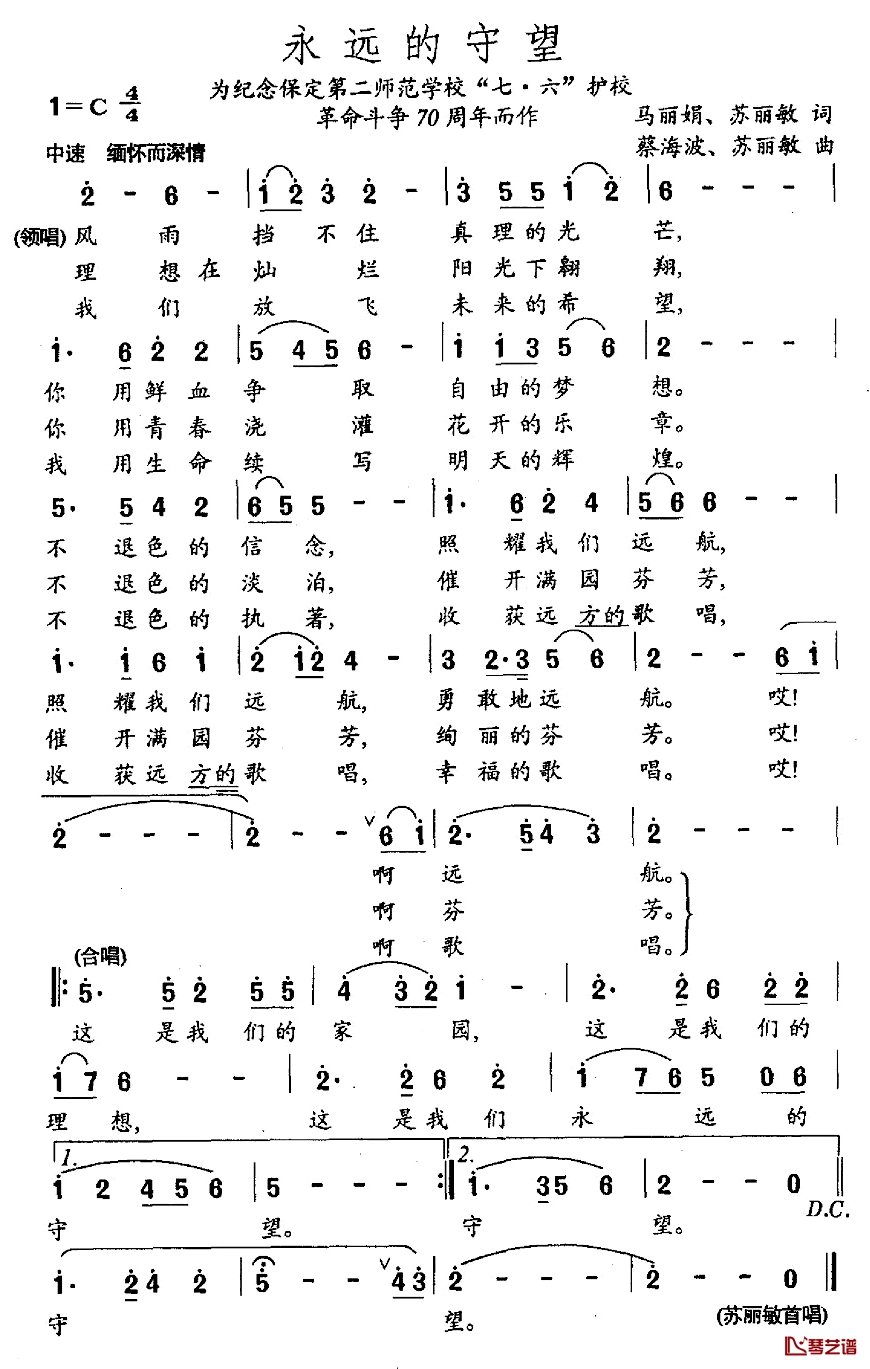 永远的守望
为纪念保定第二师范学校“七·六”护校
革命斗争70周年而作
1=C 4/4
马丽娟、苏丽敏 词
蔡海波、苏丽敏 曲
中速 缅怀而深情
2 - 6 - | 1 2 3 2 - | 3 5 5 1 2 | 6 - - - |
(领唱) 风 雨 挡 不 住 真 理 的 光 芒,
理 想 在 灿 烂 阳 光 下 翱 翔,
我 们 放 飞 未 来 的 希 望,
1· 6 2 2 | 5 4 5 6 - | 1 1 3 5 6 | 2 - - - |
你 用 鲜 血 争 取 自 由 的 梦 想。
你 用 青 春 浇 灌 花 开 的 乐 章。
我 用 生 命 续 写 明 天 的 辉 煌。
5· 5 4 2 | 6 5 5 - - | 1· 6 2 4 | 5 6 6 - - |
不 退 色 的 信 念, 照 耀 我 们 远 航,
不 退 色 的 淡 泊, 催 开 满 园 芬 芳,
不 退 色 的 执 著, 收 获 远 方 的 歌 唱,
1· 1 6 1 | 2 1 2 4 - | 3 2·3 5 6 | 2 - - 6 1 |
照 耀 我 们 远 航, 勇 敢 地 远 航。 哎!
催 开 满 园 芬 芳, 绚 丽 的 芬 芳。 哎!
收 获 远 方 的 歌 唱, 幸 福 的 歌 唱。 哎!
2 - - - | 2 - - ∨ 6 1 | 2· 5 4 3 | 2 - - - |
啊 远 航。
啊 芬 芳。
啊 歌 唱。
(合唱)
‖: 5· 5 2 5 5 | 4 3 2 1 - | 2· 2 6 2 2 |
这 是 我 们 的 家 园, 这 是 我 们 的
1 7 6 - - | 2· 2 6 2 | 1 7 6 5 0 6 |
理 想, 这 是 我 们 永 远 的
1. 1 2 4 5 6 | 5 - - - :‖ 2. 1· 3 5 5 6 | 2 - - 0 ‖
守 望。 守 望。 D.C.
1· 2 4 2 | 5 - - ∨ 4 3 | 2 - - - | 2 - - 0 ‖
守 望。 (苏丽敏首唱)
琴艺谱